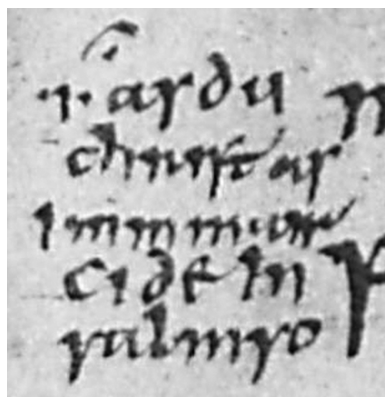 ·i· ardu
christ as
immmair
cide in
salmso